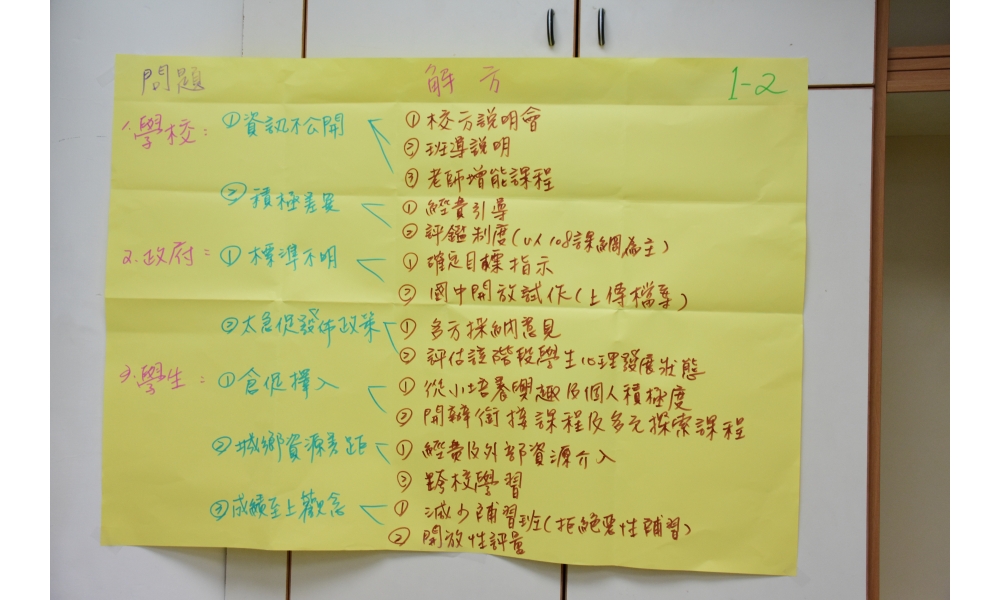 問題 解方 1-2
1.學校： ①資訊不公開 ①校方說明會
②班導說明
③老師增能課程
②積極差異 ①經費引導
②評鑑制度(以108課綱為主)
2.政府： ①標準不明 ①確定目標指示
②國中開放試作(上傳檔案)
②太急促發佈政策 ①多方採納意見
②評估該階段學生心理發展狀態
3.學生： ①倉促擇入 ①從小培養興趣及個人積極度
②開辦銜接課程及多元探索課程
②城鄉資源差距 ①經費及外部資源介入
②跨校學習
③成績至上觀念 ①減少補習班(拒絕惡性補習)
②開放性評量